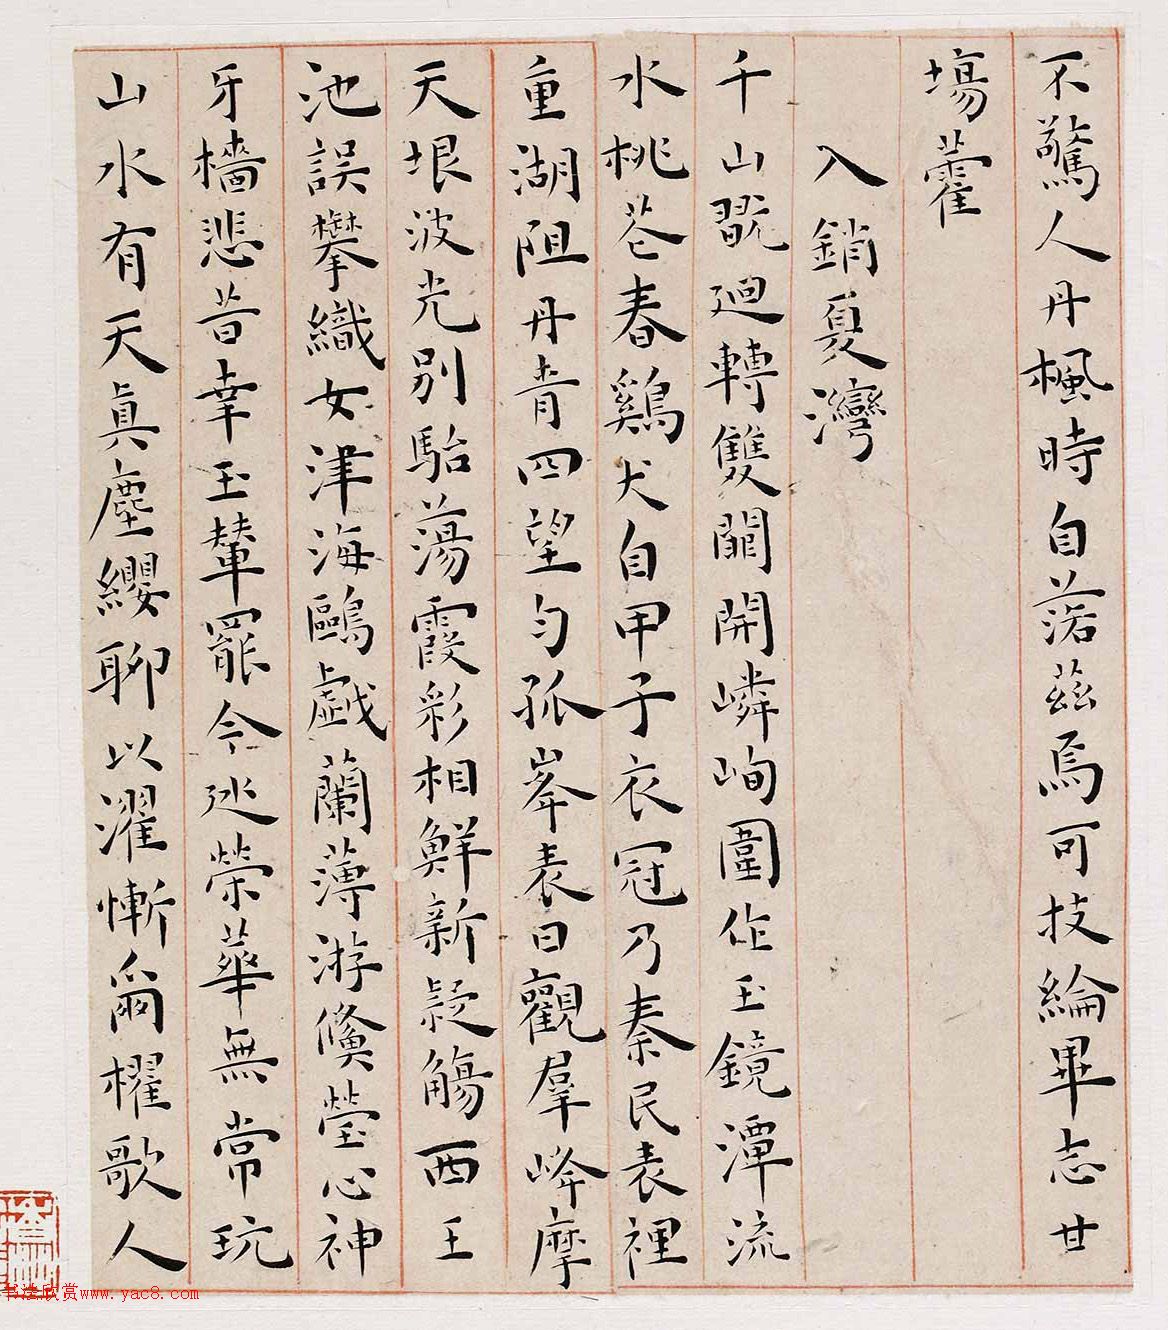 不驚人丹楓時自落茲焉可投綸畢志甘
場藿
入銷夏灣
千山翫迴轉雙關開嶙峋圍作玉鏡潭流
水桃花春鷄犬自甲子衣冠乃秦民表裡
重湖阻丹青四望勻孤峯表日觀羣峰摩
天垠波光別駘蕩霞彩相鮮新疑觴西王
池誤攀織女津海鷗戯蘭薄游鯈瑩心神
牙檣悲昔幸玉輦罷今巡榮華無常玩
山水有天真塵纓聊以濯慚爾櫂歌人
书法欣赏www.yac8.com